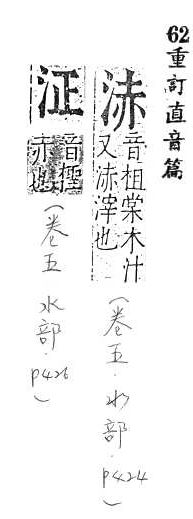 62重訂直音篇
浾
音柤棠木汁
又浾滓也
（卷五．水部．p424）
泟
音檉
赤也
（卷五 水部．p426）